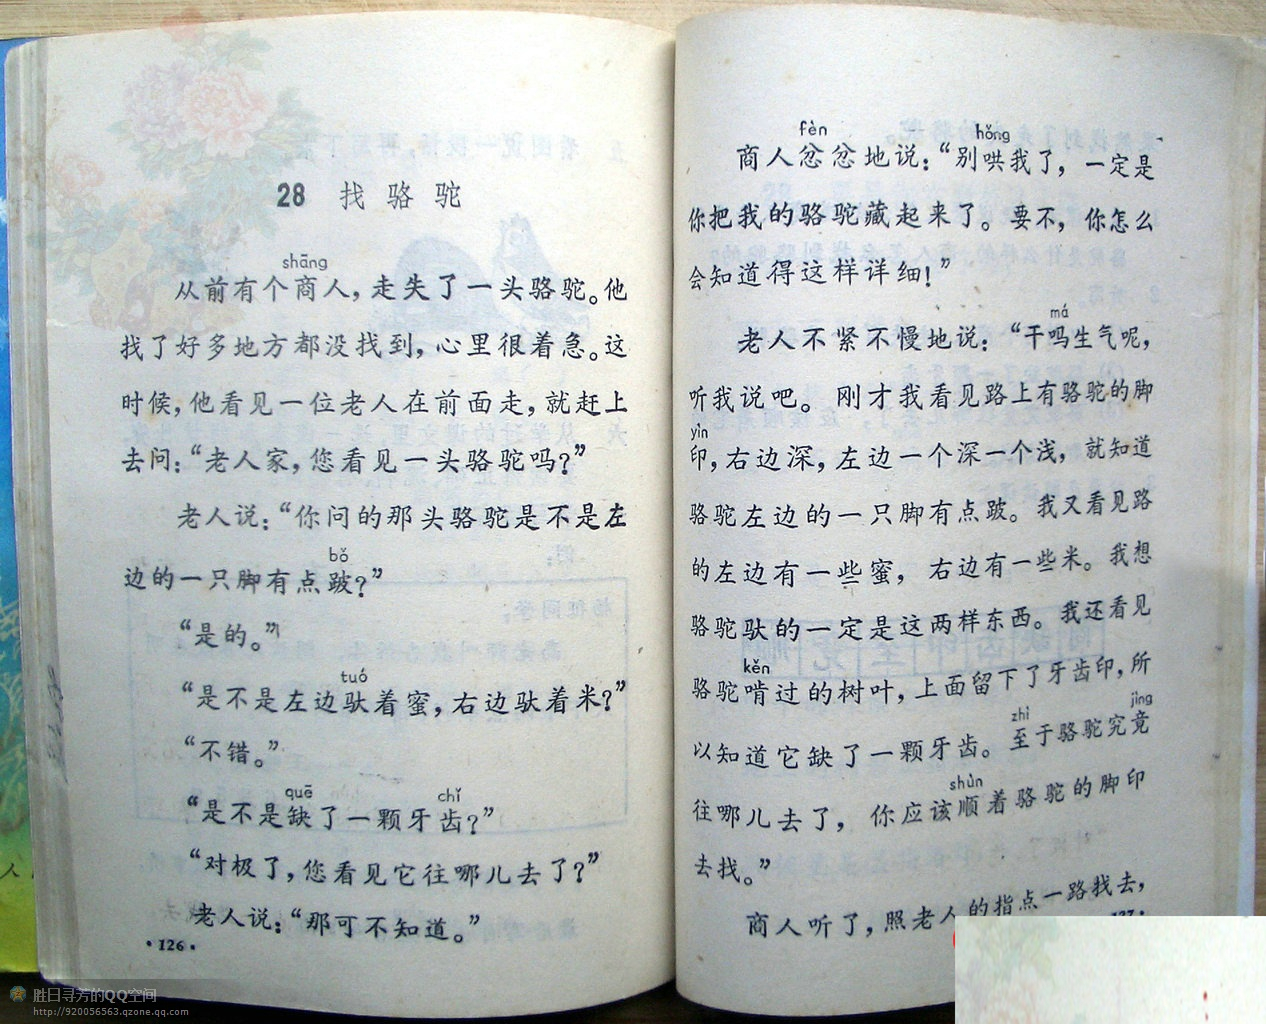 28 找骆驼
shāng
从前有个商人，走失了一头骆驼。他
找了好多地方都没找到，心里很着急。这
时候，他看见一位老人在前面走，就赶上
去问：“老人家，您看见一头骆驼吗？”
老人说：“你问的那头骆驼是不是左
bǒ
边的一只脚有点跛？”
“是的。”
tuó
“是不是左边驮着蜜，右边驮着米？”
“不错。”
quē chǐ
“是不是缺了一颗牙齿？”
“对极了，您看见它往哪儿去了？”
老人说：“那可不知道。”
·126·
fèn hǒng
商人忿忿地说：“别哄我了，一定是
你把我的骆驼藏起来了。要不，你怎么
会知道得这样详细！”
má
老人不紧不慢地说：“干吗生气呢，
听我说吧。刚才我看见路上有骆驼的脚
yìn
印，右边深，左边一个深一个浅，就知道
骆驼左边的一只脚有点跛。我又看见路
的左边有一些蜜，右边有一些米。我想
骆驼驮的一定是这两样东西。我还看见
kěn
骆驼啃过的树叶，上面留下了牙齿印，所
zhì jìng
以知道它缺了一颗牙齿。至于骆驼究竟
shùn
往哪儿去了，你应该顺着骆驼的脚印
去找。”
商人听了，照老人的指点一路找去，
胜日寻芳的QQ空间
http://920056563.qzone.qq.com